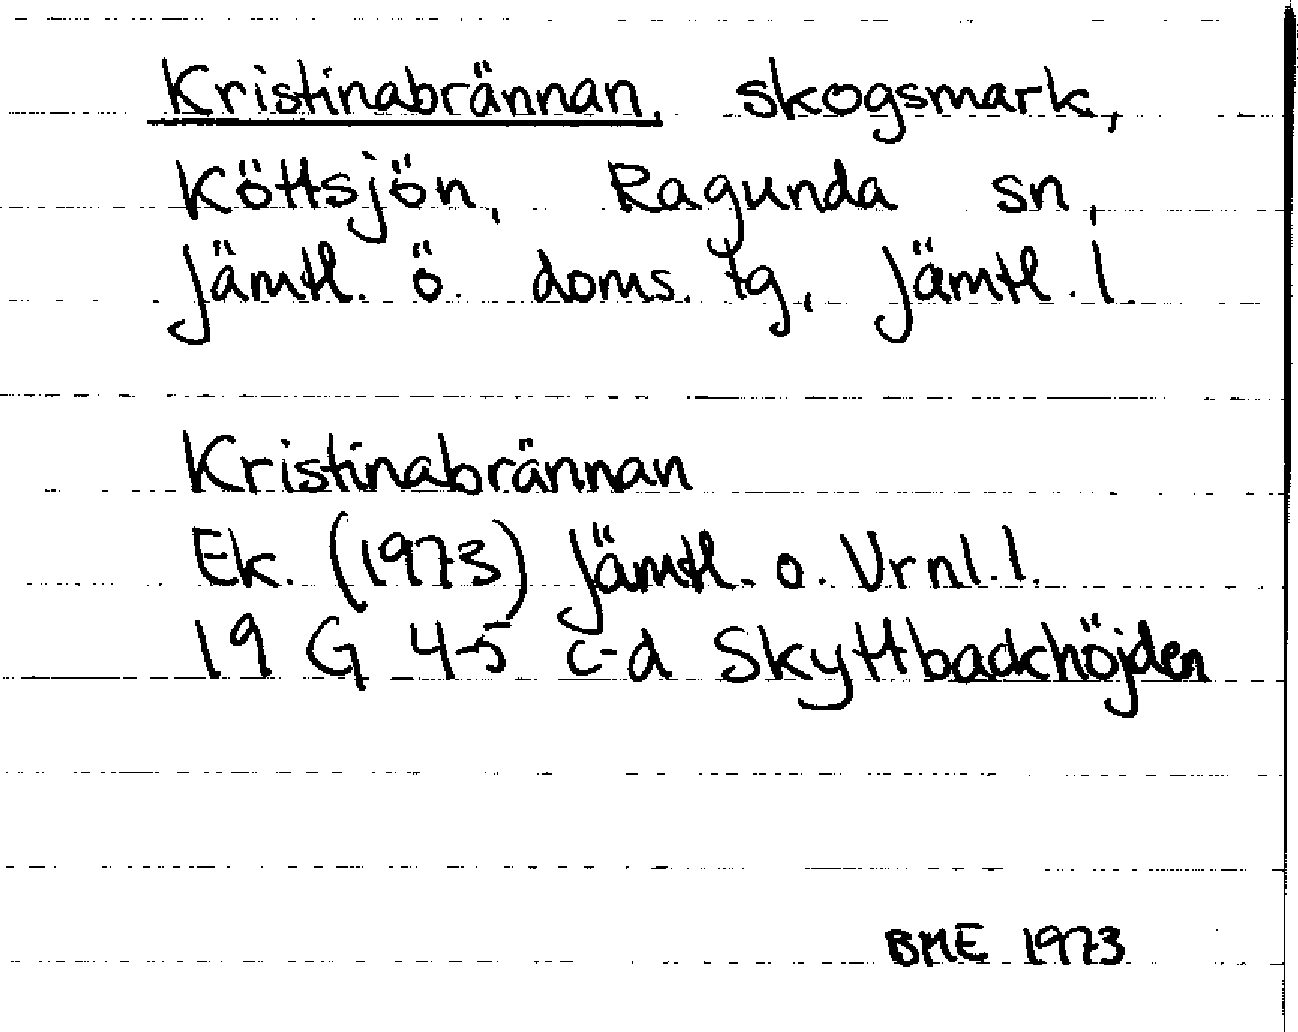 Kristinabrännan, skogsmark,
Köttsjön, Ragunda sn,
Jämtl. ö. doms. tg, Jämtl. l.
Kristinabrännan
Ek. (1973) Jämtl. o. Vrnl. l.
19 G 4-5 c-d Skyttbackhöjden
BME 1973